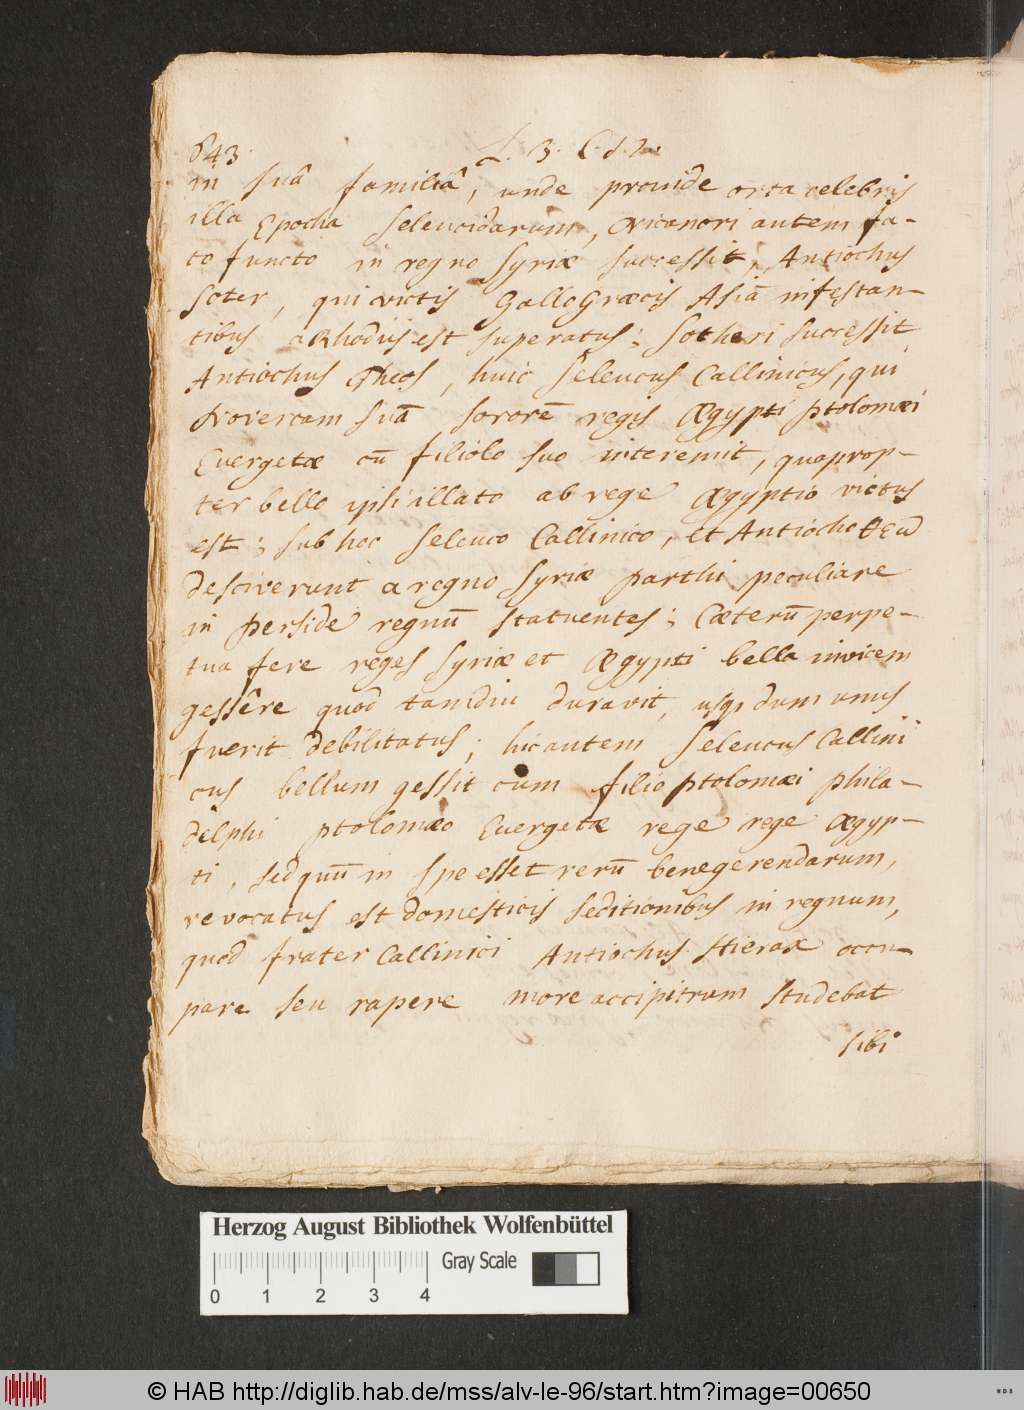 643. L. 3. C. d. 2
in suâ familiâ, unde provide orta celebris
illa Epocha Seleucidarum, Nicanori autem fa-
to functo in regno Syriæ successit, Antiochus
Soter, qui victis GalloGræcis Asiã infęstan-
tibus a Rhodiis est superatus; Sotheri successit
Antiochus Theos, huic Seleucus Callinicus, qui
Novercam suã sororẽ regis Ægypti Ptolomæi
Evergetæ cũ filiolo suo interemit, quaprop-
ter bello ipsi illato ab rege Ægyptio victus
est; sub hoc Seleuco Callinico, et Antiocho θεω
desciverunt a regno Syriæ parthi peculiare
in Perside regnũ statuentes; Cæterũ perpe-
tua fere reges Syriæ et Ægypti bella invicem
gessêre quod tamdiu duravit, usq dum unus
fuerit debilitatus; hic autem Seleucus Callini
cus bellum gessit cum filio ptolomæi phila-
delphi ptolomæo Evergetæ rege rege Ægyp-
ti, sed quũ in spe esset rerũ bene gerendarum,
revocatus est domesticis seditionibus in regnum,
quod frater Callinici Antiochus Hierax occu-
pare seu rapere more accipitrum studebat
sibi
Herzog August Bibliothek Wolfenbüttel
Gray Scale
0 1 2 3 4
© HAB http://diglib.hab.de/mss/alv-le-96/start.htm?image=00650